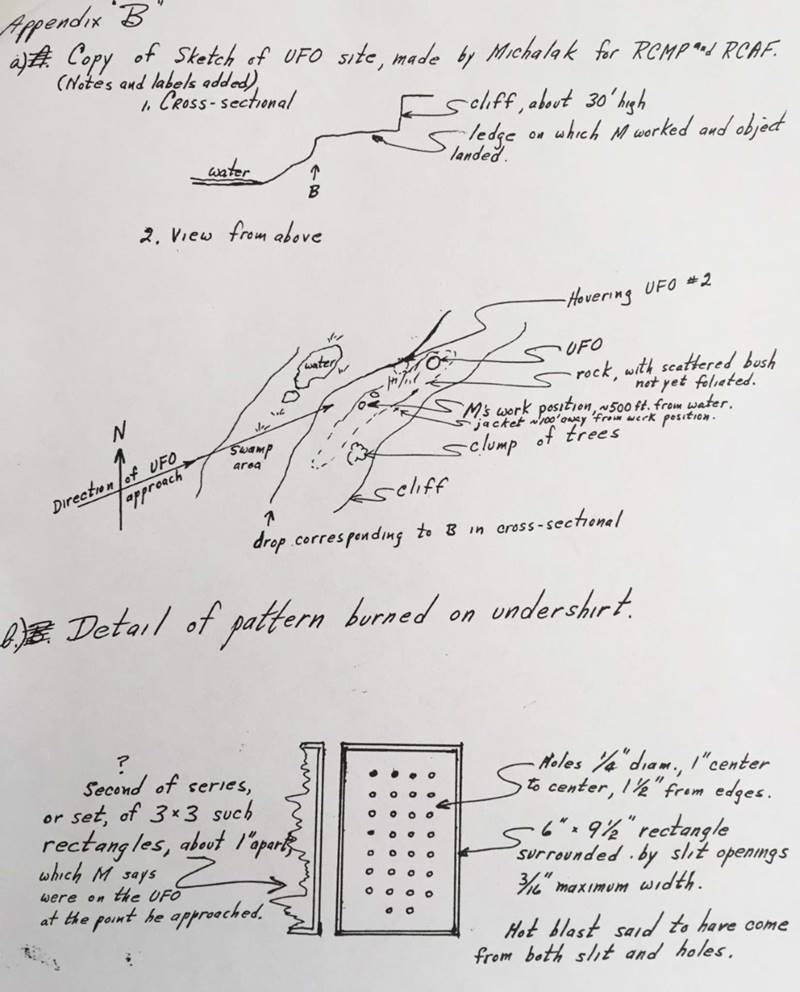 Appendix "B"
a) A. Copy of Sketch of UFO site, made by Michalak for RCMP and RCAF.
(Notes and labels added)
1. Cross-sectional
cliff, about 30' high
ledge on which M worked and object
landed.
water
B
2. View from above
Hovering UFO #2
UFO
water
rock, with scattered bush
not yet foliated.
M's work position, ~500 ft. from water.
jacket ~100' away from work position.
N
clump of trees
Swamp
area
Direction of UFO
approach
cliff
drop corresponding to B in cross-sectional
b.) B. Detail of pattern burned on undershirt.
?
Second of series,
or set, of 3 x 3 such
rectangles, about 1" apart,
which M says
were on the UFO
at the point he approached.
Holes 1/4" diam., 1" center
to center, 1 1/2" from edges.
6" x 9 1/2" rectangle
surrounded by slit openings
3/16" maximum width.
Hot blast said to have come
from both slit and holes.